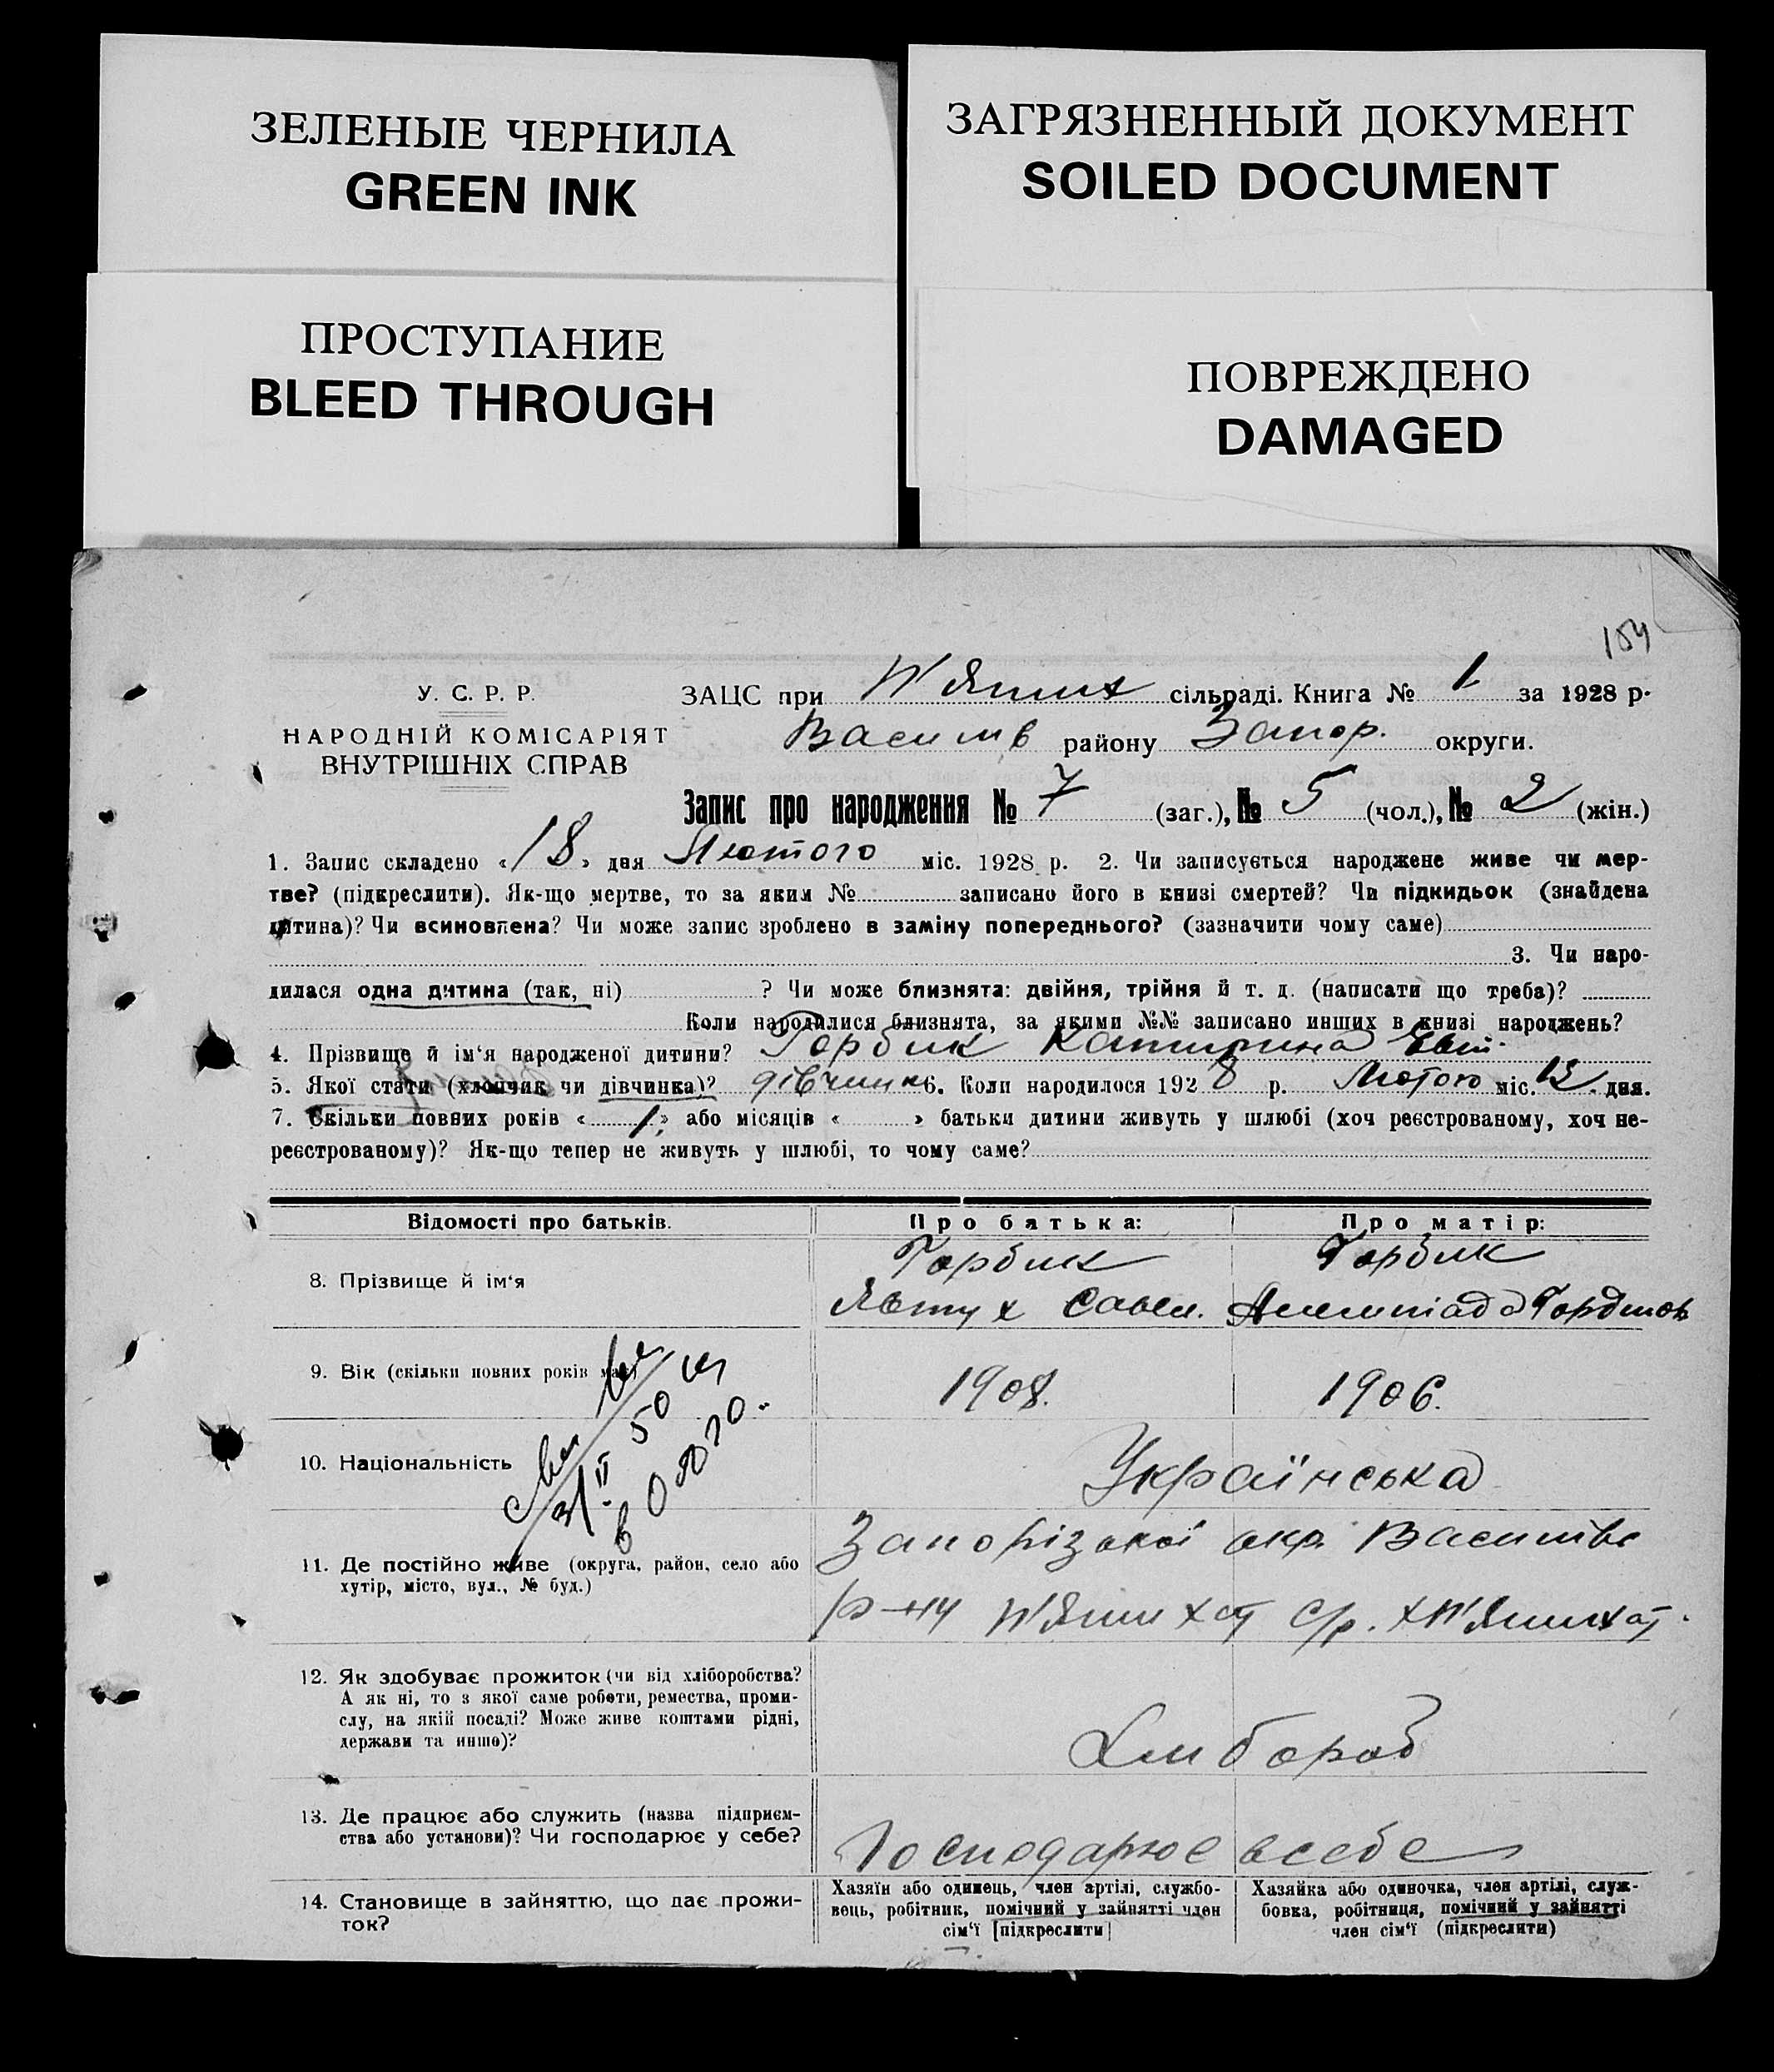 ЗЕЛЕНЫЕ ЧЕРНИЛА
GREEN INK
ЗАГРЯЗНЕННЫЙ ДОКУМЕНТ
SOILED DOCUMENT
ПРОСТУПАНИЕ
BLEED THROUGH
ПОВРЕЖДЕНО
DAMAGED
154
У. С. Р. Р.
НАРОДНІЙ КОМІСАРІЯТ
ВНУТРІШНІХ СПРАВ
ЗАЦС при П'ятих сільраді. Книга № 1 за 1928 р.
Василів району Запор. округи.
Запис про народження № 7 (заг.), № 5 (чол.), № 2 (жін.)
1. Запис складено «18» дня Лютого міс. 1928 р. 2. Чи записується народжене живе чи мер-
тве? (підкреслити). Як-що мертве, то за яким № записано його в книзі смертей? Чи підкидьок (знайдена
дитина)? Чи всиновлена? Чи може запис зроблено в заміну попереднього? (зазначити чому саме)
3. Чи наро-
дилася одна дитина (так, ні) ? Чи може близнята: двійня, трійня й т. д. (написати що треба)?
Коли народилися близнята, за якими №№ записано инших в книзі народжень?
4. Прізвище й ім'я народженої дитини? Горбик Катирина Євт.
5. Якої стати (хлопчик чи дівчинка)? дівчинк 6. Коли народилося 1928 р. Лютого міс. 13. дня.
7. Скільки повних років « 1 » або місяців « » батьки дитини живуть у шлюбі (хоч реєстрованому, хоч не-
реєстрованому)? Як-що тепер не живуть у шлюбі, то чому саме?
Відомості про батьків.
Про батька:
Про матір:
8. Прізвище й ім'я
Горбик
Явтух Савел.
Горбик
Гордіюв
9. Вік (скільки повних років має)
1908.
1906.
10. Національність
Українська
11. Де постійно живе (округа, район, село або
хутір, місто, вул., № буд.)
Запорізької окр. Василівс
р-ну П'ятихат с/р. х П'ятихат.
12. Як здобуває прожиток (чи від хліборобства?
А як ні, то з якої саме роботи, ремества, проми-
слу, на якій посаді? Може живе коштами рідні,
держави та инше)?
Хлибороб
13. Де працює або служить (назва підприєм-
ства або установи)? Чи господарює у себе?
Господарює в себе
14. Становище в зайняттю, що дає прожи-
ток?
Хазяїн або одинець, член артілі, службо-
вець, робітник, помічний у зайнятті член
сім'ї [підкреслити]
Хазяйка або одиночка, член артілі, служ-
бовка, робітниця, помічний у зайнятті
член сім'ї (підкреслити)